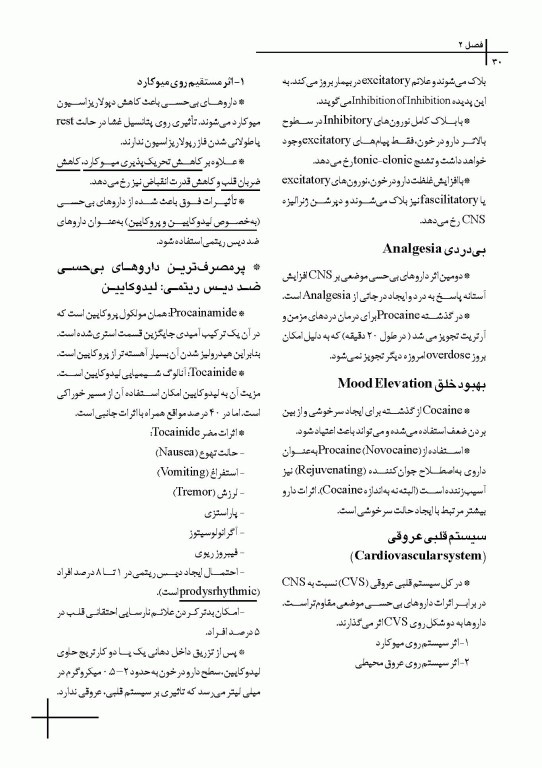 فصل ۲
۳۰
بلاک می‌شوند و علائم excitatory در بیمار بروز می‌کند. به
این پدیده Inhibition of Inhibition می‌گویند.
* با بلاک کامل نورون‌های Inhibitory در سطوح
بالاتر دارو در خون، فقط پیام‌های excitatory وجود
خواهد داشت و تشنج tonic-clonic رخ می‌دهد.
* با افزایش غلظت دارو در خون، نورون‌های excitatory
یا fascilitatory نیز بلاک می‌شوند و دپرشن ژنرالیزه
CNS رخ می‌دهد.
بی‌دردی Analgesia
* دومین اثر داروهای بی‌حسی موضعی بر CNS افزایش
آستانه پاسخ به درد و ایجاد درجاتی از Analgesia است.
* در گذشته Procaine برای درمان دردهای مزمن و
آرتریت تجویز می شد ( در طول ۲۰ دقیقه) که به دلیل امکان
بروز overdose امروزه دیگر تجویز نمی‌شود.
بهبود خلق Mood Elevation
* Cocaine از گذشته برای ایجاد سرخوشی و از بین
بردن ضعف استفاده می‌شده و می‌تواند باعث اعتیاد شود.
* استفاده از Procaine (Novocaine) به‌عنوان
داروی به‌اصطلاح جوان‌کننده (Rejuvenating) نیز
آسیب‌زننده است (البته نه به‌اندازه Cocaine). اثرات دارو
بیشتر مرتبط با ایجاد حالت سرخوشی است.
سیستم قلبی عروقی
(Cardiovascular system)
* در کل سیستم قلبی عروقی (CVS) نسبت به CNS
در برابر اثرات داروهای بی‌حسی موضعی مقاوم‌تر است.
داروها به دو شکل روی CVS اثر می‌گذارند.
۱-اثر سیستم روی میوکارد
۲-اثر سیستم روی عروق محیطی
۱-اثر مستقیم روی میوکارد
* داروهای بی‌حسی باعث کاهش دپولاریزاسیون
میوکارد می‌شوند. تأثیری روی پتانسیل غشا در حالت rest
یا طولانی شدن فاز رپولاریزاسیون ندارند.
* علاوه بر کاهش تحریک‌پذیری میوکارد، کاهش
ضربان قلب و کاهش قدرت انقباض نیز رخ می‌دهد.
* تأثیرات فوق باعث شده از داروهای بی‌حسی
(به‌خصوص لیدوکایین و پروکایین) به‌عنوان داروهای
ضد دیس ریتمی استفاده شود.
* پرمصرف‌ترین داروهای بی‌حسی
ضد دیس ریتمی: لیدوکایین
* Procainamide: همان مولکول پروکایین است که
در آن یک ترکیب آمیدی جایگزین قسمت استری شده است.
بنابراین هیدرولیز شدن آن بسیار آهسته‌تر از پروکایین است.
* Tocainide: آنالوگ شیمیایی لیدوکایین است.
مزیت آن به لیدوکایین امکان استفاده آن از مسیر خوراکی
است. اما در ۴۰ درصد مواقع همراه با اثرات جانبی است.
* اثرات مضر Tocainide:
- حالت تهوع (Nausea)
- استفراغ (Vomiting)
- لرزش (Tremor)
- پاراستزی
- آگرانولوسیتوز
- فیبروز ریوی
- احتمال ایجاد دیس ریتمی در ۱ تا ۸ درصد افراد
(prodysrhythmic است).
-امکان بدتر کردن علائم نارسایی احتقانی قلب در
۵ درصد افراد.
* پس از تزریق داخل دهانی یک یا دو کارتریج حاوی
لیدوکایین، سطح دارو در خون به حدود ۲-۰.۵ میکروگرم در
میلی لیتر می‌رسد که تاثیری بر سیستم قلبی، عروقی ندارد.